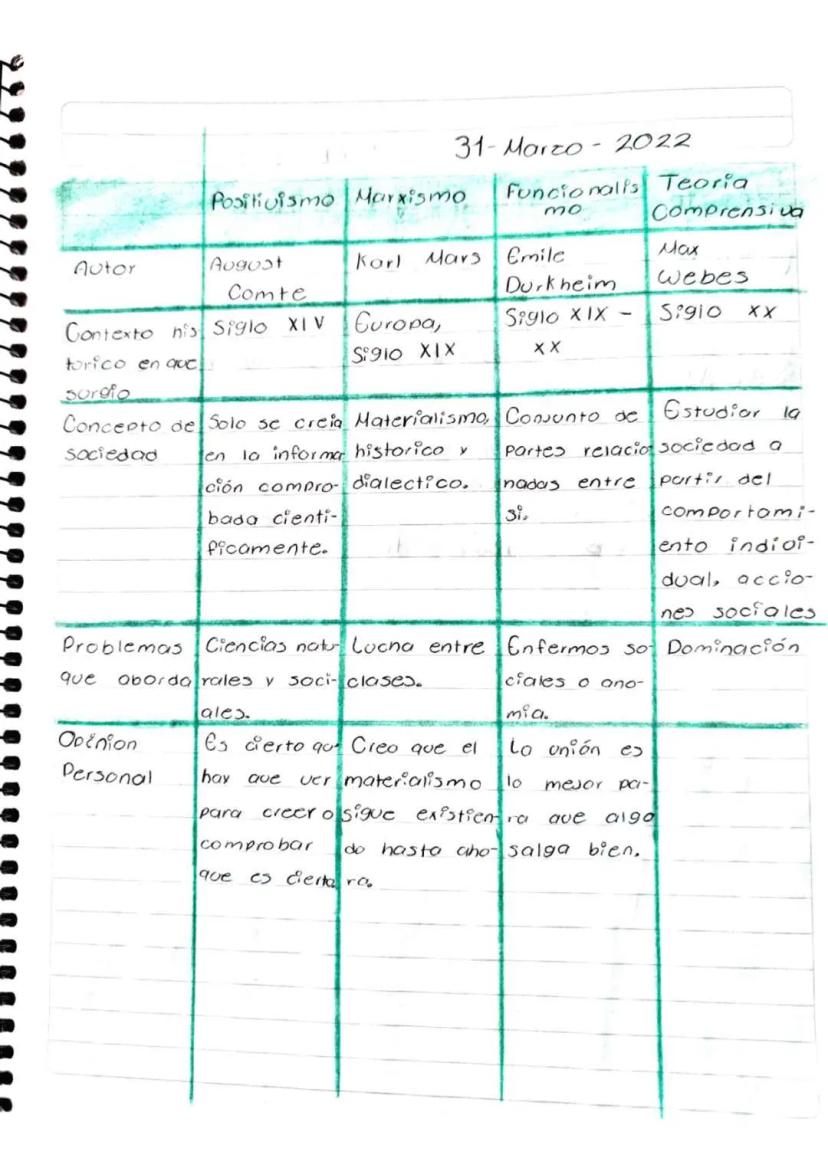 31-Marzo-2022
Positivismo
Marxismo
Funcionalis
mo
Teoria
Comprensiva
Autor
August
Comte
Karl Mars
Emile
Durkheim
Max
Webes
Contexto his
torico en que
surgio
Siglo XIV
Europa,
Siglo XIX
Siglo XIX -
XX
Siglo XX
Concepto de
sociedad
Solo se creia
en la informa
ción compro-
bada cienti-
ficamente.
Materialismo,
historico y
dialectico.
Conjunto de
partes relacio
nadas entre
si.
Estudiar la
sociedad a
partir del
comportami-
ento indivi-
dual, accio-
nes sociales
Problemas
que aborda
Ciencias natu-
rales y soci-
ales.
Lucha entre
clases.
Enfermos so-
ciales o ano-
mia.
Dominación
Opinion
Personal
Es cierto qu
hay que ver
para creer o
comprobar
que es cierta
Creo que el
materialismo
sigue existien-
do hasta aho-
ra.
La unión es
lo mejor pa-
ra que algo
salga bien.